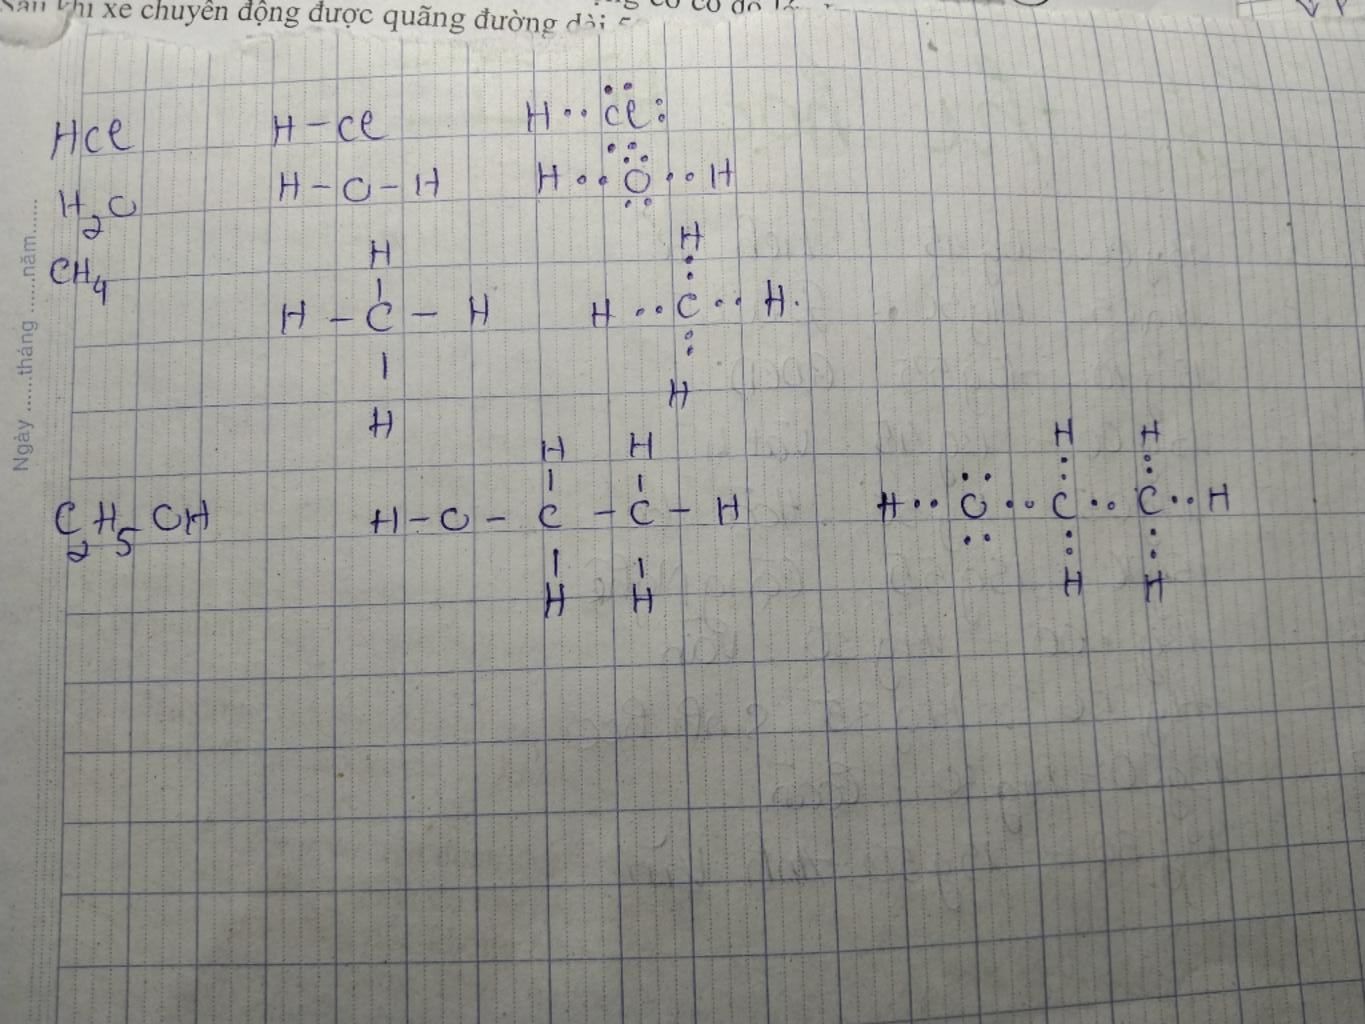 Sau khi xe chuyển động được quãng đường dài 5
Ngày ......tháng ......năm......
HCl H-Cl H··Cl:
H2O H-O-H H··O··H
CH4
H H
H-C-H H··C··H.
H H
H H H H
C2H5OH H-O-C-C-H H··O··C··C··H
H H H H